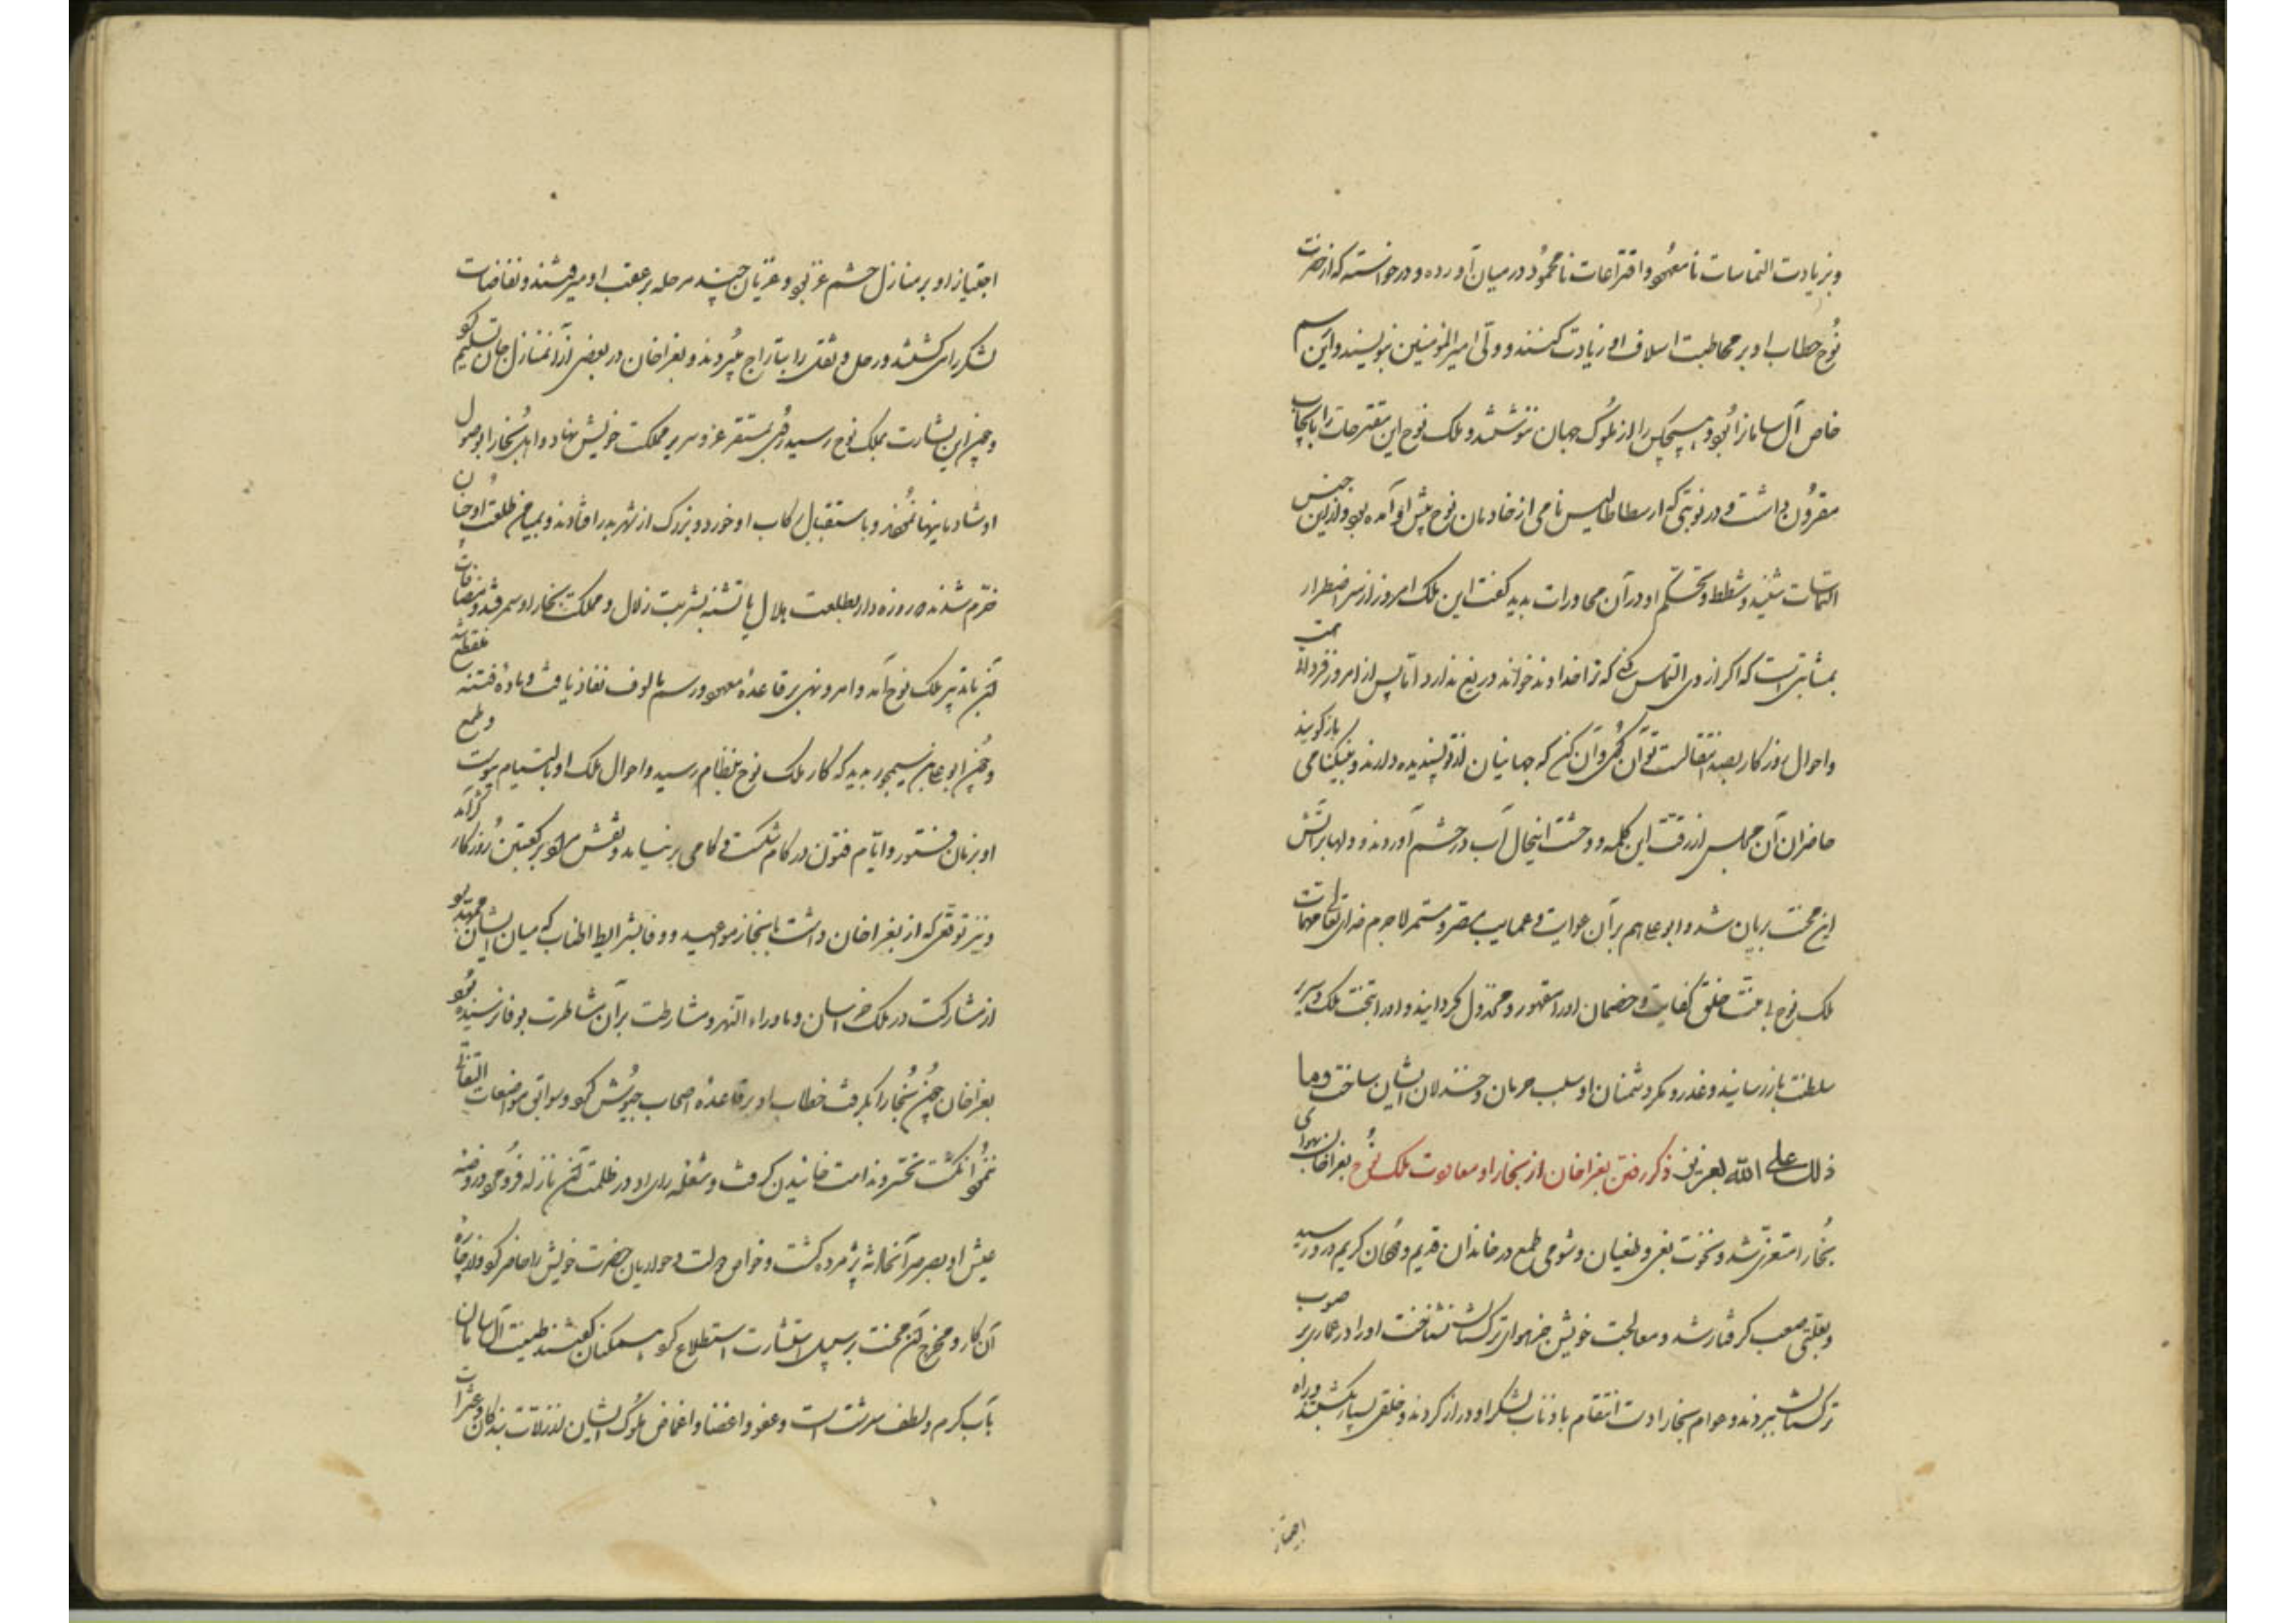 و بزیادت التماسات نامعهود و اقتراحات نامحمود در میان آورده و درخواسته که از حضرت
نوح خطاب او بر مخاطبت اسلاف او زیادت کنند و ولی امیر المؤمنین نویسند و این اسم
خاص آل سامانرا بود و هیچکس را از ملوک جهان ننوشتند و ملک نوح این مقترحات را بایجاب
مقرون داشت و در نوبتی که ارسطاطالیس نامی از خادمان نوح پیش او آمده بود و از این جنس
التماسات شنید و شطط و تحکم او در آن محاورات بدید گفت این ملک امروز از سر اضطرار
بمثابتی است که اگر از وی التماس کنی که ترا خداوند خواند دریغ ندارد اما پس از امروز فرداست
و احوال روزگار بصدد انتقالست تو آن گوی و آن کن که جهانیان از تو پسندیده دارند و بنیکنامی بازگویند
حاضران آن مجلس از رقت این کلمه و وحشت اینحال آب در چشم آوردند و دلها بر آتش
این محنت بریان شد و ابو علی هم بر آن غوایت و عمایت مصر و مستمر لاجرم خدای تعالی مهمات
ملک نوح بی منت خلق کفایت و خصمان او را مقهور و مخذول گردانید و او را بتخت ملک و سریر
سلطنت باز رسانید و غدر و مکر دشمنان او سبب حرمان و خذلان ایشان ساخت و ما
ذلک علی الله بعزیز ذکر رفتن بغراخان از بخارا و معاودت ملک نوح بغراخان بهوای
بخارا متعزی شد و نخوت بغی و طغیان و شومی طمع در خاندان قدیم و مکان کریم در او رسید
و بعلتی صعب گرفتار شد و معالجت خویش جز هوای ترکستان نشناخت او را در عماری بر صوب
ترکستان ببردند و عوام بخارا دست انتقام باذناب لشکر او دراز کردند و خلقی بسیار بکشتند و راه
اجتیاز
اجتیاز او بر منازل حشم غز بود و غزیان چند مرحله بر عقب او میرفتند و نفاضات
لشکر را می کشتند و رحل و ثقل را بتاراج میبردند و بغراخان در بعضی از آن منازل جان تسلیم کرد
و چون این بشارت بملک نوح رسید روی بمستقر عز و سریر مملکت خویش نهاد و اهل بخارا بوصول
او شادیانها نمودند و باستقبال رکاب او خورد و بزرگ از شهر بدر افتادند و بمیامن طلعت او چنان
خرم شدند که روزه دار بطلعت هلال یا تشنه بشربت زلال و مملکت بخارا و سمرقند و مضافات
آن با تدبیر ملک نوح آمد و امر و نهی بر قاعده معهود و رسم مالوف نفاذ یافت و ماده فتنه منقطع شد
و چون ابو علی بن سیمجور بدید که کار ملک نوح بنظام رسید و احوال ملک او بالتیام پیوست و طمع
او بزمان فتور و ایام فتون در کام شکست و کامی برنیامد و نقش مراد بر کعبتین روزگار کژ آمد
و نیز توقعی که از بغراخان داشت بانجاز مواعید و وفا بشرایط اطناب که میان ایشان ممهد بود
از مشارکت در ملک خراسان و ماوراء النهر و مشارطت بر آن مشاطرت بوفا نرسیده بود
بغراخان چون بخارا بگرفت خطاب او بر قاعده اصحاب جیوش کرد و سوابق مواضعات التفاتی
ننمود انگشت تحیر و ندامت خائیدن گرفت و شعله رای او در ظلمت آن نازله فرو مرد و روضه
عیش او بصرصر آنحادثه پژمرده گشت و خواص دولت و حواریان حضرت خویش را حاضر کرد و از چاره
آن کار و مخرج آن محنت بر سبیل استشارت استطلاع کرد همکنان گفتند طینت آل سامان
بآب کرم و لطف سرشته است و عفو و اغضا و اغماض ملوک ایشان از زلات بندگان و عثرات